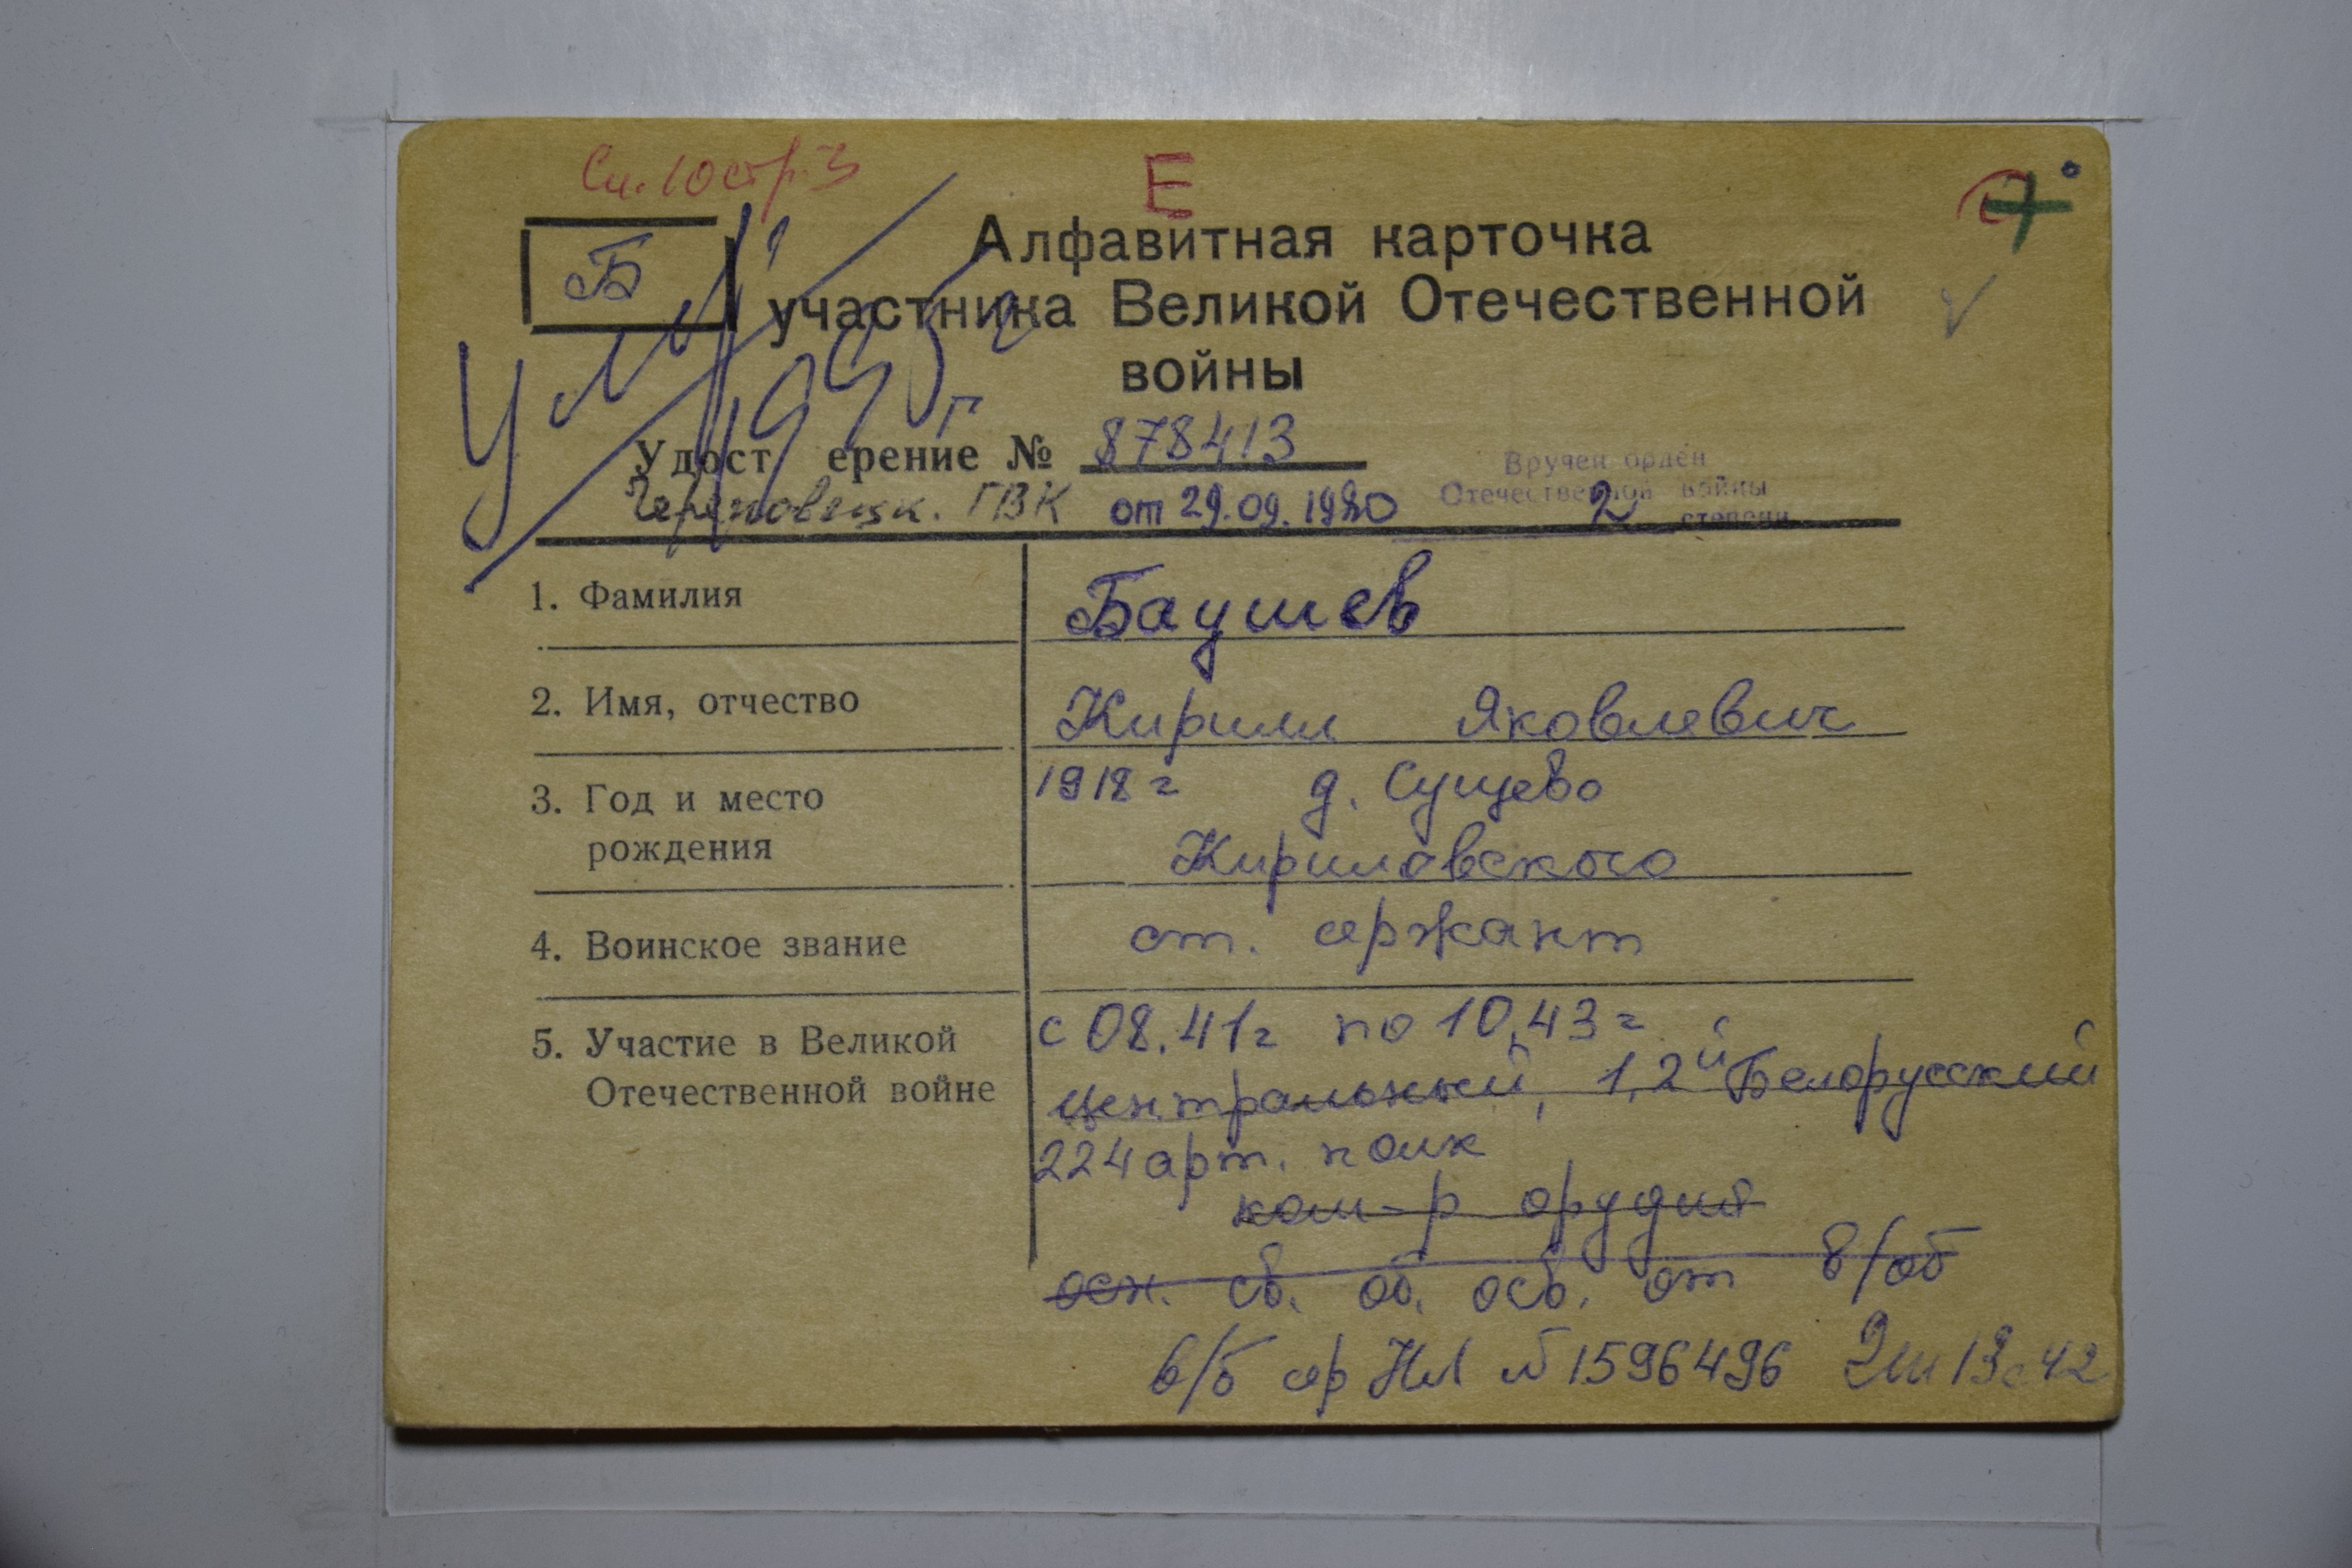 Сп. 10 стр. 3
Е
Б
Алфавитная карточка
участника Великой Отечественной
войны
Ум.
1995 г
Удост ерение № 878413
Череповецк. ГВК от 29.09.1980
Вручен орден
Отечественной войны
2 степени
1. Фамилия
Баушев
2. Имя, отчество
Кирилл Яковлевич
3. Год и место
рождения
1918 г д. Сущево
Кирилловского
4. Воинское звание
ст. сержант
5. Участие в Великой
Отечественной войне
с 08.41 г по 10.43 г
центральный, 1,2й Белорусский
224 арт. полк
ком-р орудий
осн. св. об. осв. от в/об
в/б сер НЛ № 1596496